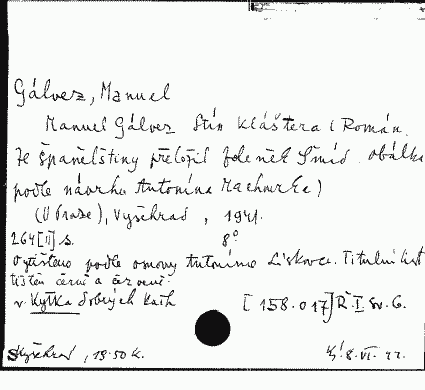 Gálvez, Manuel
Manuel Gálvez Stín kláštera (Román.
Ze španělštiny přeložil Zdeněk Šmíd. Obálka
podle návrhu Antonína Machourka)
(V Praze), Vyšehrad, 1941.
264 [II] s. 8°
Vytištěno podle osnovy Antonína Liskovce. Titulní list
tištěn černě a červeně.
v. Kytka dobrých knih [158.017] Ř. I. Sv. 6.
Vyšehrad, 19.50 K. 8. VI.